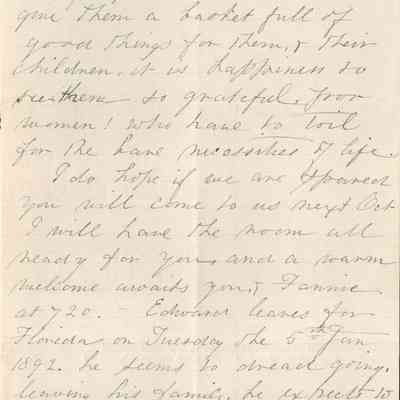 give them a basket full of
good things for them, & their
children. it is happiness to
see them so grateful. poor
women! who have to toil
for the bare necessities of life.
I do hope if we are spared
you will come to us next Oct
I will have the room all
ready for you, and a warm
welcome awaits you, & Fannie
at 720. - Edward leaves for
Florida on Tuesday the 5th Jan
1892. he seems to dread going.
leaving his family. he expects to